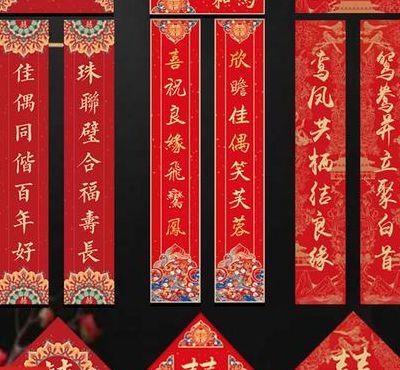 鸳鸯并立聚白首
鸾凤共栖结良缘
欣瞻佳偶笑芙蓉
喜祝良緣飛鸞鳳
珠聯璧合福壽長
佳偶同偕百年好